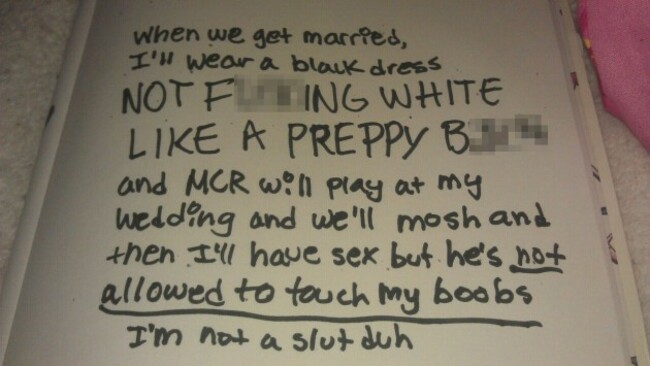 when we get married,
I'll wear a black dress
NOT F ING WHITE
LIKE A PREPPY B
and MCR will play at my
wedding and we'll mosh and
then I'll have sex but he's not
allowed to touch my boobs
I'm not a slut duh